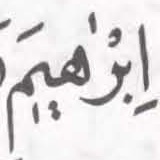 اِبْرٰه۪يمَ